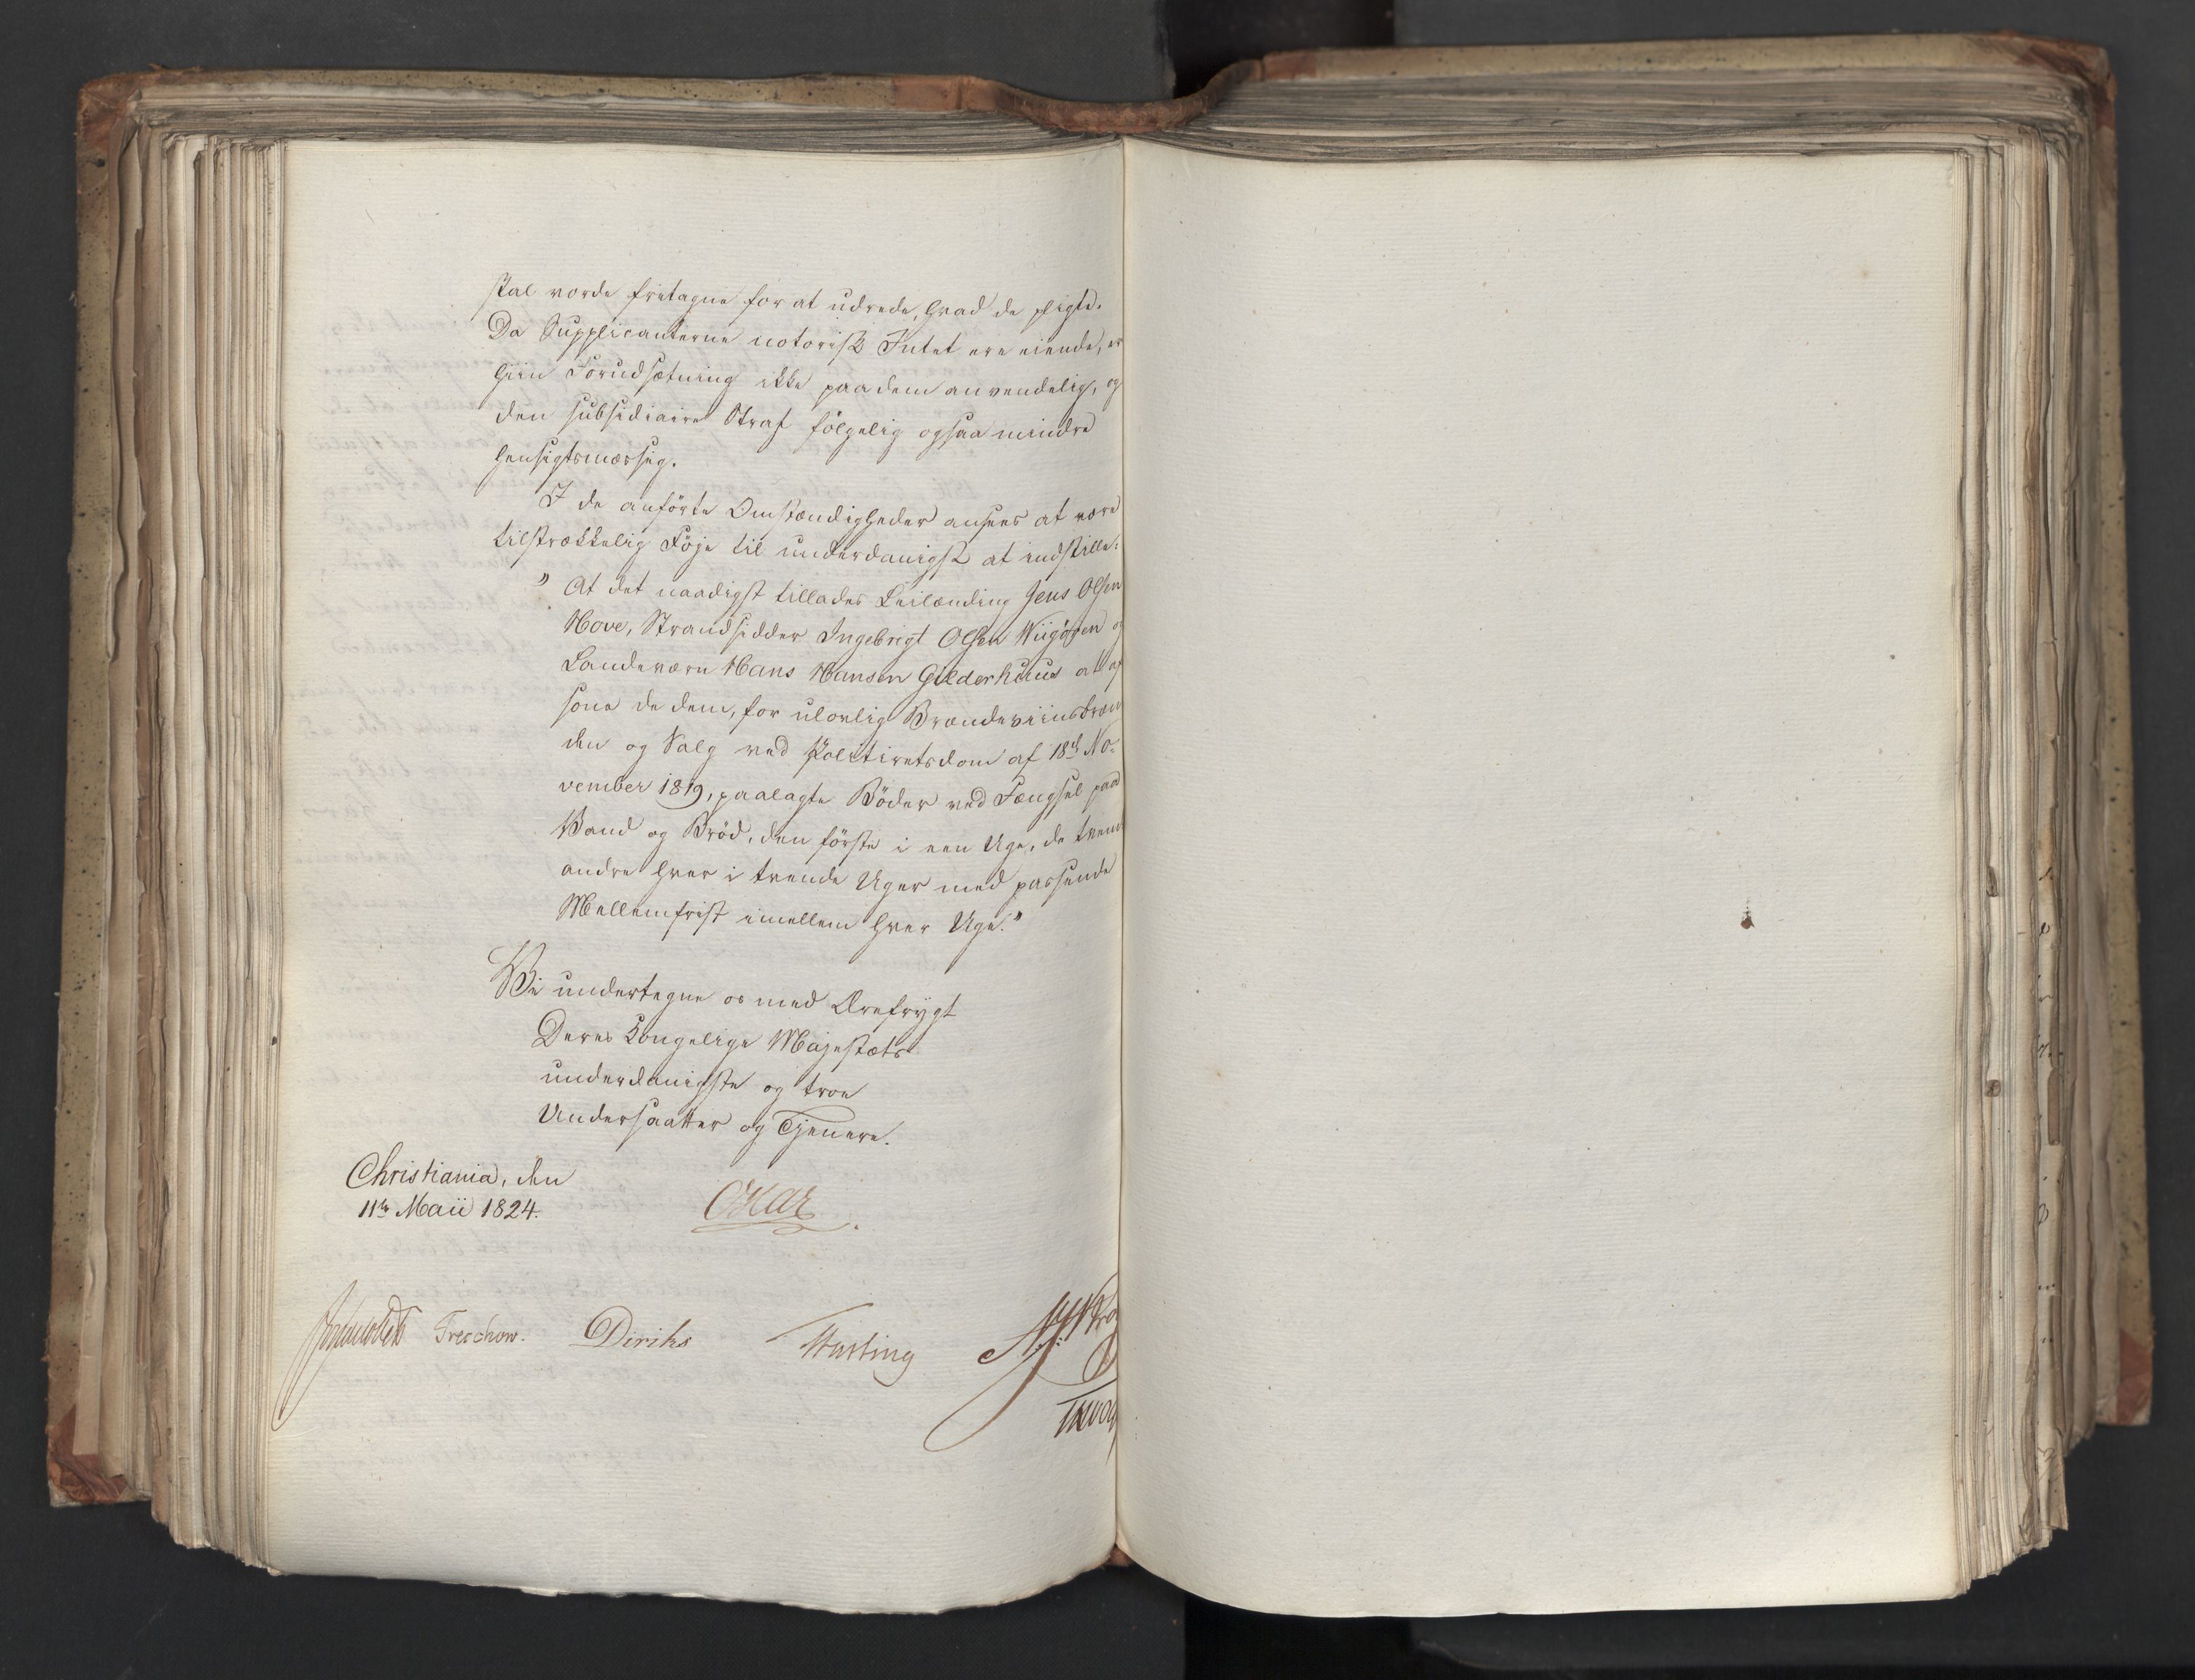 skal vorde fritagne for at udrede, hvad de pligte.
Da Supplicanterne notorisk Intet ere eiende, er
hiin Forudsætning ikke paa dem anvendelig, og
den subsidiaire Straf følgelig ogsaa mindre
hensigtsmæssig.
I de anførte Omstændigheder ansees at være
tilstrækkelig Føje til underdanigst at indstille:
"At det naadigst tillades Leilænding Jens Olsen
Hove, Strandsidder Ingebrigt Olsen Wiigøren og
Landeværn Hans Hansen Gilderhuus at af
sone de dem, for ulovlig Brændeviinsbræn
den og Salg ved Politiretsdom af 18de No-
vember 1819, paalagte Bøder ved Fængsel paa
Vand og Brød, den første i een Uge, de tvende
andre hver i trende Uger med passende
Mellemfrist imellem hver Uge."
Vi undertegne os med Ærefrygt
Deres Kongelige Majestæts
underdanigste og troe
Undersaatter og Tjenere.
Christiania, den
11te Maii 1824.
Oscar
Treschow. Diriks